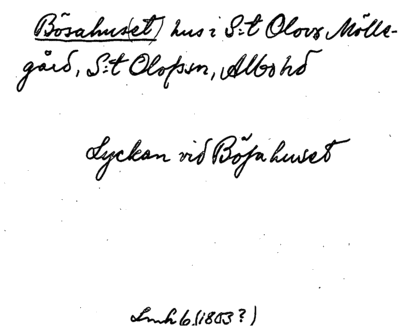 Bösahus(et) hus i S:t Olovs Mölle-
gård, S:t Olofs sn, Albo hd
Lyckan vid Bösahuset
Lmh 6 (1803?)